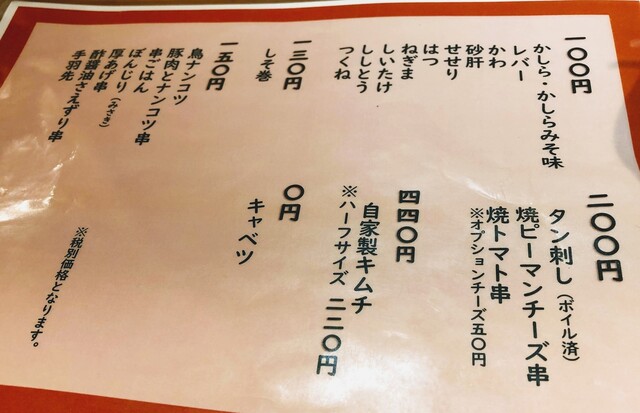 一〇〇円
かしら・かしらみそ味
レバー
かわ
砂肝
せせり
はつ
ねぎま
しいたけ
ししとう
つくね
一三〇円
しそ巻
一五〇円
鳥ナンコツ
豚肉とナンコツ串
串ごはん
ぼんじり
厚あげ串(みさき)
酢醤油さえずり串
手羽先
二〇〇円
タン刺し(ボイル済)
焼ピーマンチーズ串
焼トマト串
※オプションチーズ五〇円
四四〇円
自家製キムチ
※ハーフサイズ 二二〇円
〇円
キャベツ
※税別価格となります。